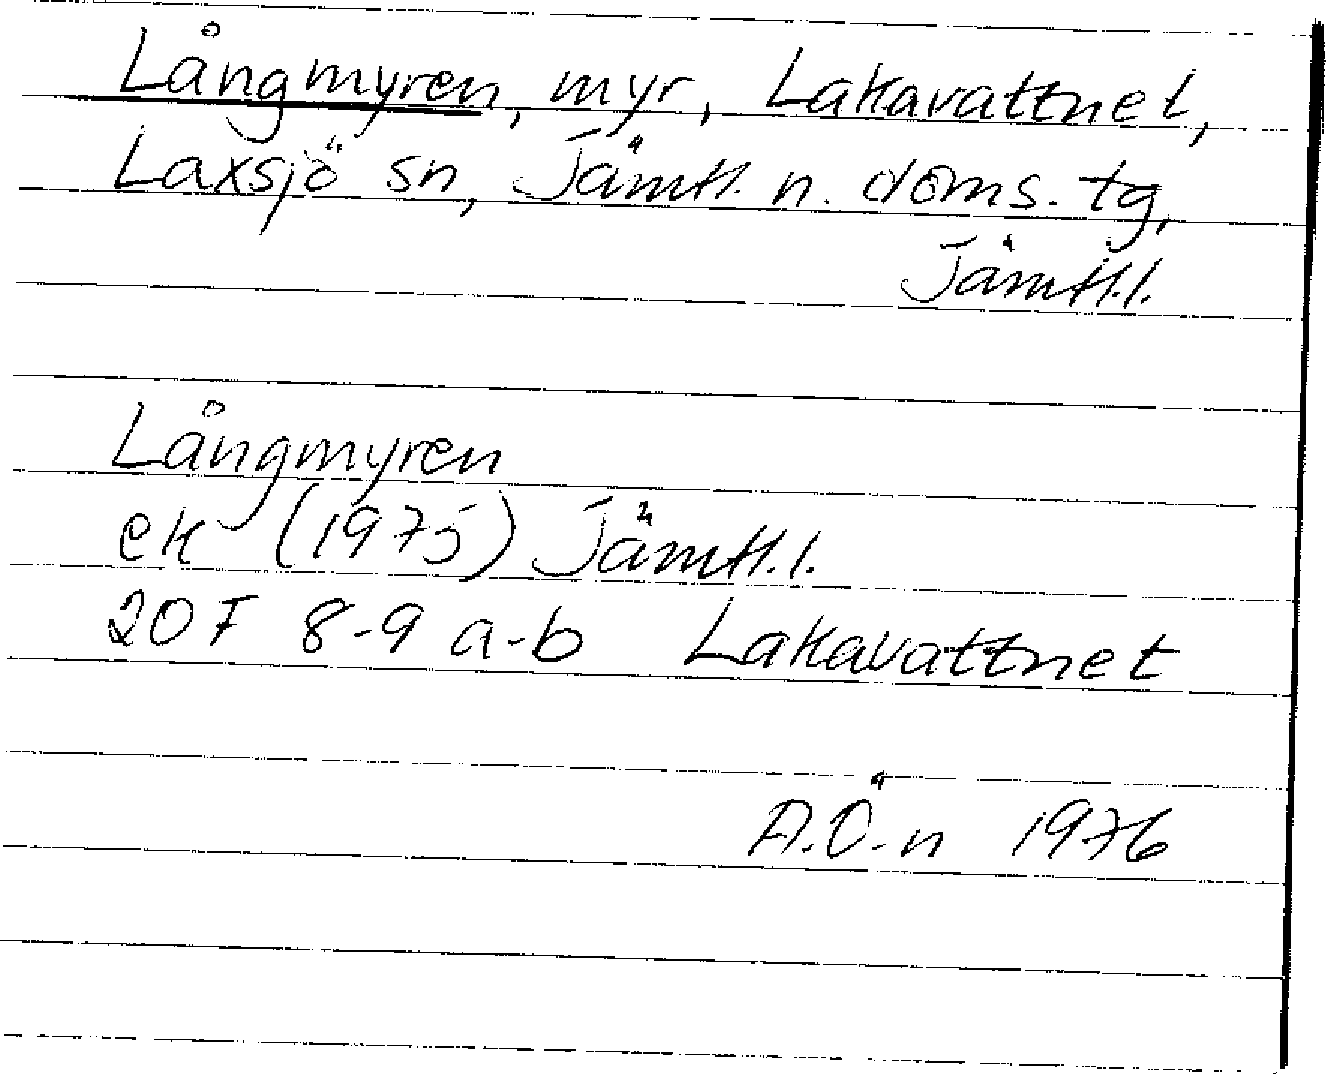 Långmyren, myr, Lakavattnet,
Laxsjö sn, Jämtl. n. doms. tg,
Jämtl.l.
Långmyren
ek (1975) Jämtl.l.
20 F 8-9 a-b Lakavattnet
A.Ö-n 1976